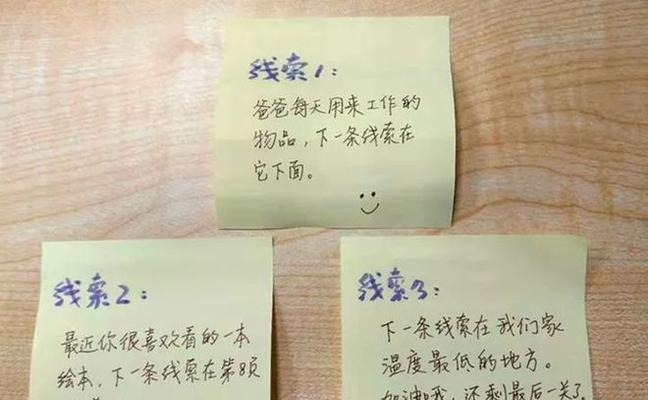 线索1:
爸爸每天用来工作的
物品,下一条线索在
它下面。
线索2:
最近你很喜欢看的一本
绘本,下一条线索在第8页
线索3:
下一条线索在我们家
温度最低的地方。
加油哦,还剩最后一关了